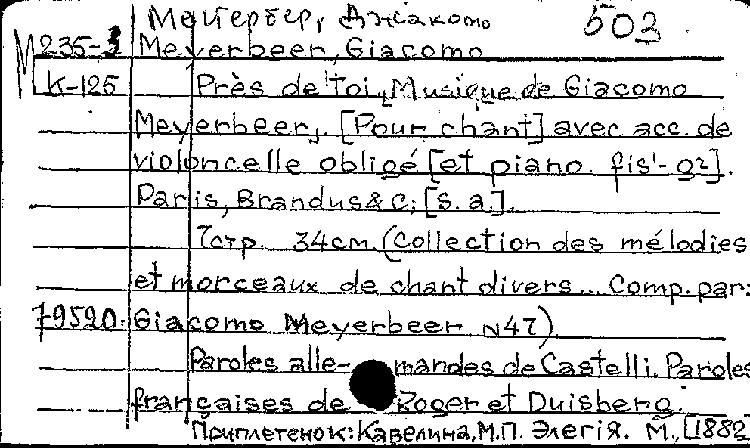 Мейербер, Джакомо 503
М 235-3 Meyerbeer, Giacomo
К-125 Près de toi, Musique de Giacomo
Meyerbeer,. [Pour chant] avec acc. de
violoncelle obligé [et piano. fis¹-g²].
Paris, Brandus & C; [s. a.].
7стр. 34см. (Collection des mélodies
et morceaux de chant divers... Comp. par:
79520. Giacomo Meyerbeer N47)
Paroles allemandes de Castelli. Paroles
françaises de Roger et Duisberg.
Приплетенок: Кавелина, М.П. Элегія. М., [1882